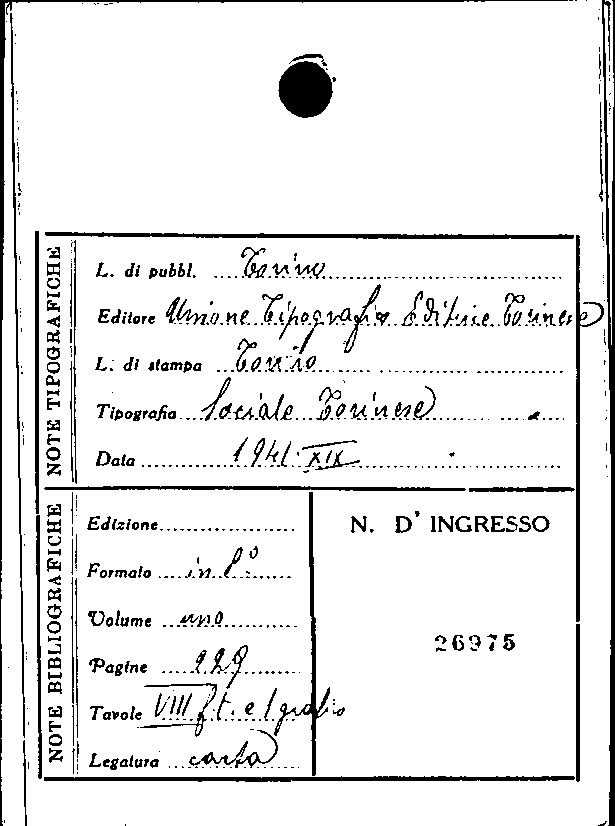 NOTE TIPOGRAFICHE
L. di pubbl. Torino
Editore Unione Tipografia Editrice Torinese
L. di stampa Torino
Tipografia Sociale Torinese
Data 1941-XIX
NOTE BIBLIOGRAFICHE
Edizione
Formato in 8°
Volume uno
Pagine 229
Tavole VIII f. t. e 1
Legatura carta
N. D' INGRESSO
26975